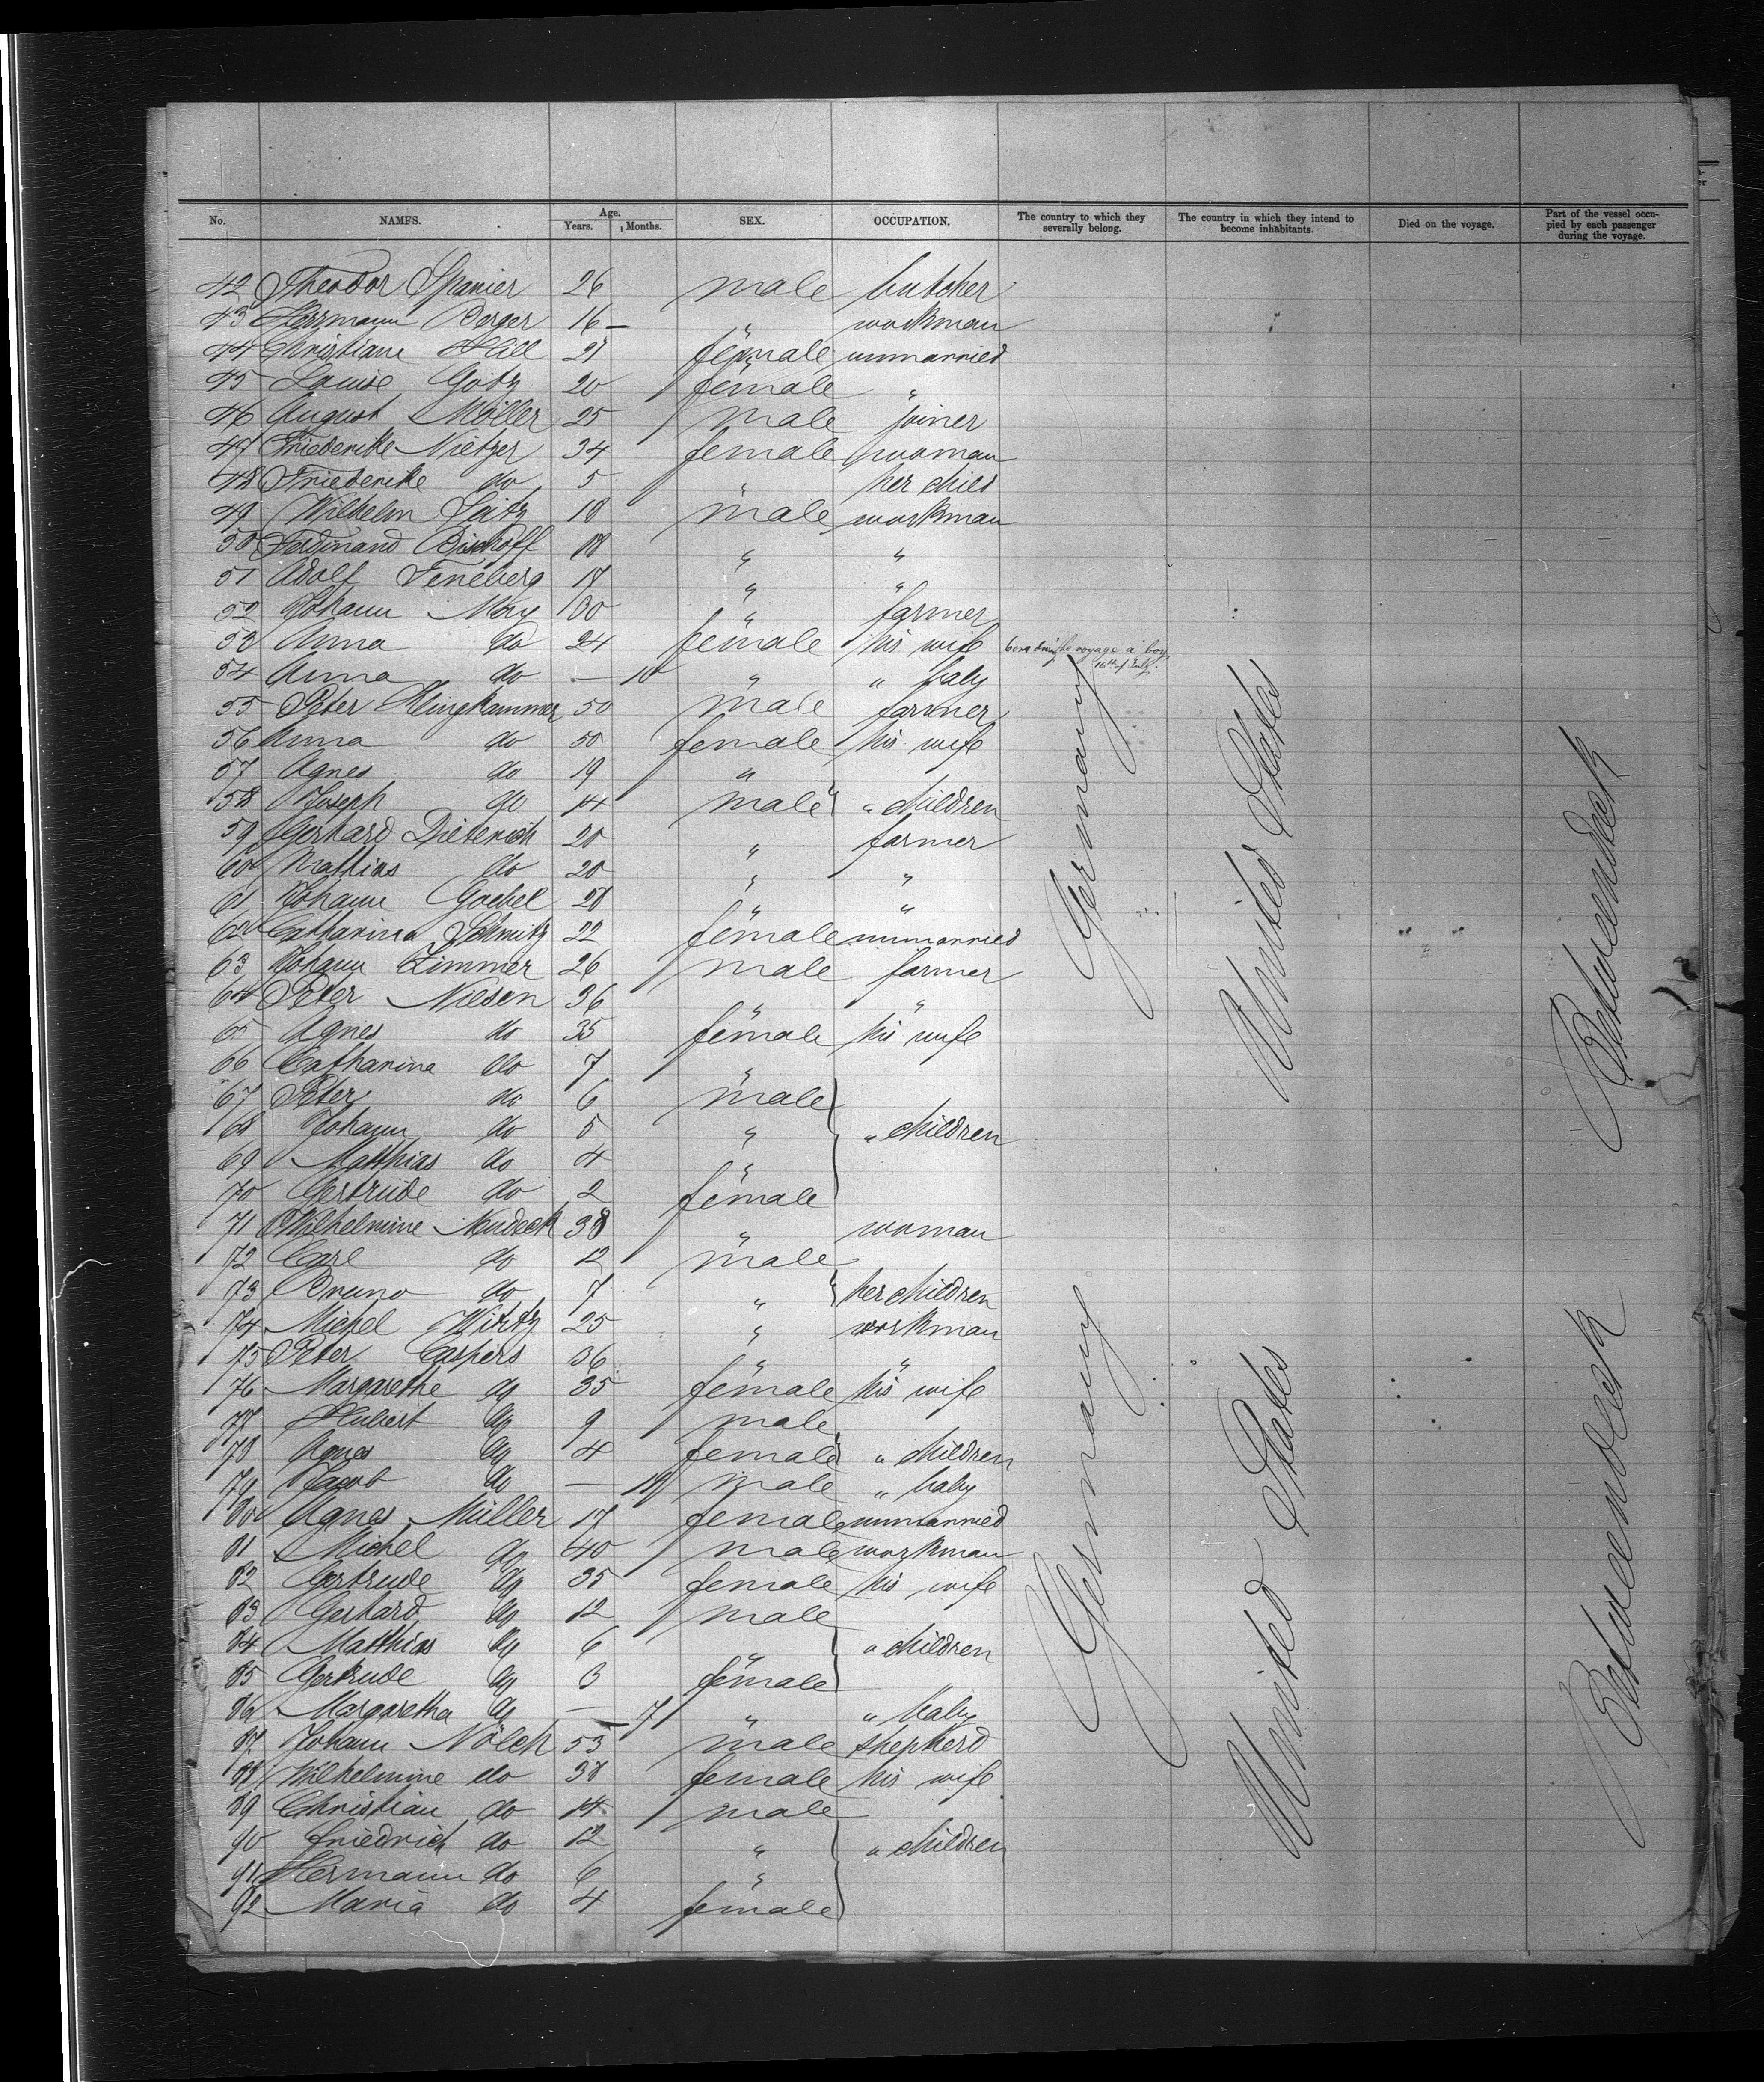 No. NAMES. Age. Years. Months. SEX. OCCUPATION. The country to which they severally belong. The country in which they intend to become inhabitants. Died on the voyage. Part of the vessel occupied by each passenger during the voyage.
42 Theodor Spanier 26 male butcher
43 Herrmann Berger 16 — " workman
44 Christiane Hill 21 female unmarried
45 Louise Götz 20 female "
46 August Möller 25 male joiner
47 Friederike Nietzer 34 female woman
48 Friederike do 5 " her child
49 Wilhelm Seitz 18 male workman
50 Ferdinand Bischoff 18 " "
51 Adolf Feneberg 17 " "
52 Johann May 30 " farmer
53 Anna do 24 female his wife born during the voyage a boy 16th of July.
54 Anna do — 10 " " baby
55 Peter Klinghammer 50 male farmer
56 Anna do 50 female his wife
57 Agnes do 19 "
58 Joseph do 14 male " children
59 Gerhard Dieterich 20 " farmer
60 Mathias do 20 " "
61 Johann Goebel 28 " "
62 Catharina Schmitz 22 female unmarried
63 Johann Zimmer 26 male farmer
64 Peter Niesen 36 " "
65 Agnes do 35 female his wife
66 Catharina do 7 "
67 Peter do 6 male
68 Johann do 5 " " children
69 Matthias do 4 "
70 Gertrude do 2 female
71 Wilhelmine Neudeck 38 " woman
72 Carl do 12 male
73 Bruno do 7 " her children
74 Michel Wirtz 25 " workman
75 Peter Caspers 36 " "
76 Margarethe do 35 female his wife
77 Hubert do 9 male
78 Agnes do 4 female " children
79 Jacob do — male " baby
80 Agnes Müller 17 female unmarried
81 Michel do 40 male workman
82 Gertrude do 35 female his wife
83 Gerhard do 12 male
84 Matthias do 6 " " children
85 Gertrude do 3 female
86 Margaretha do — 7 " " baby
87 Johann Nölck 53 male shepherd
88 Wilhelmine do 38 female his wife
89 Christian do 14 male
90 Friedrich do 12 " " children
91 Hermann do 6 "
92 Maria do 4 female
Germany
United States
Betweendeck
Germany
United States
Betweendeck